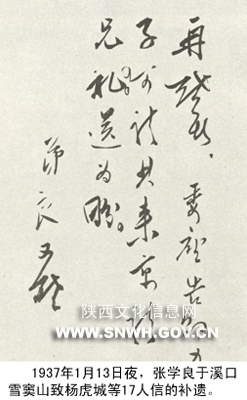 再啟者，委座告
子可請其来京
兄礼送为盼。
弟良又啟
陕西文化信息网
WWW.SNWH.GOV.CN
1937年1月13日夜，张学良于溪口
雪窦山致杨虎城等17人信的补遗。